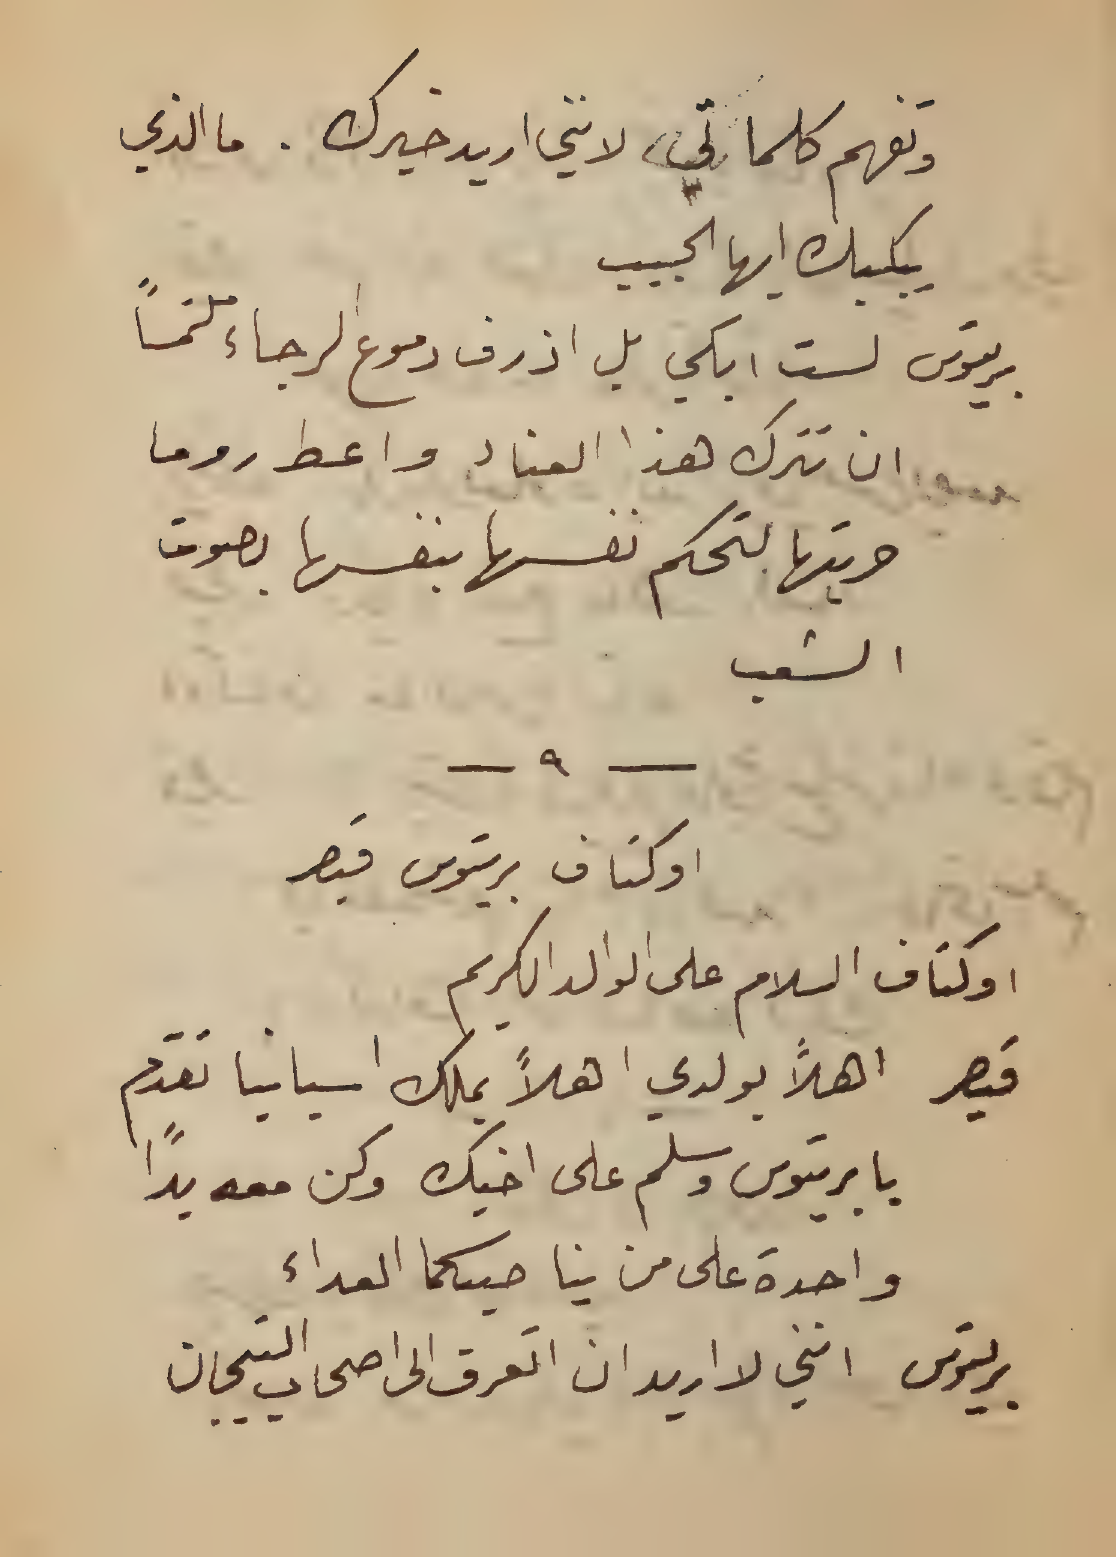 وتفهم كلماتي لانني اريد خيرك . ما الذي
يبكيك ايها الحبيب
بريتوس لست ابكي بل اذرف دموع الرجاء ملتمساً
ان تترك هذا العناد واعط روما
حريتها لتحكم نفسها بنفسها بصوت
الشعب
— ٩ —
اوكتاف بريتوس قيصر
اوكتاف السلام على الوالد الكريم
قيصر اهلاً بولدي اهلاً بملك اسبانيا تقدم
يا بريتوس وسلم على اخيك وكن معه يداً
واحدة على من يناصبكما العداء
بريتوس انني لا اريد ان اتعرف الى اصحاب التيجان